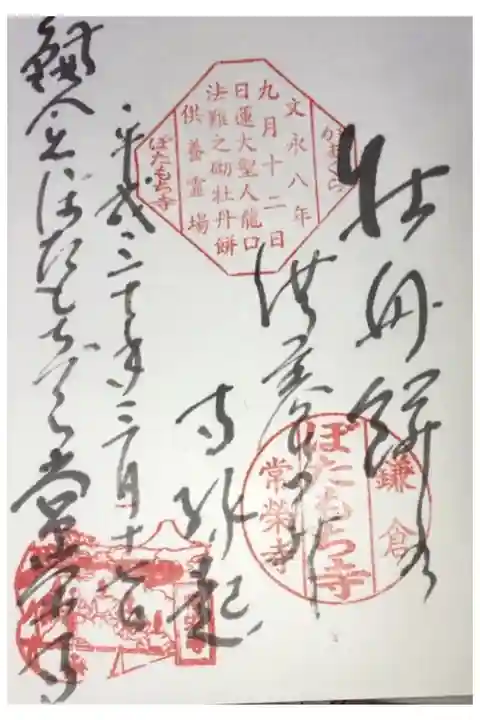 牡丹餅の
供養
かまくら
文永八年
九月十二日
日蓮大聖人龍口
法難之砌牡丹餅
供養霊場
ぼたもち寺
鎌倉
ぼたもち寺
常榮寺
平成三十年三月十七日
鎌倉ぼたもち寺常栄寺